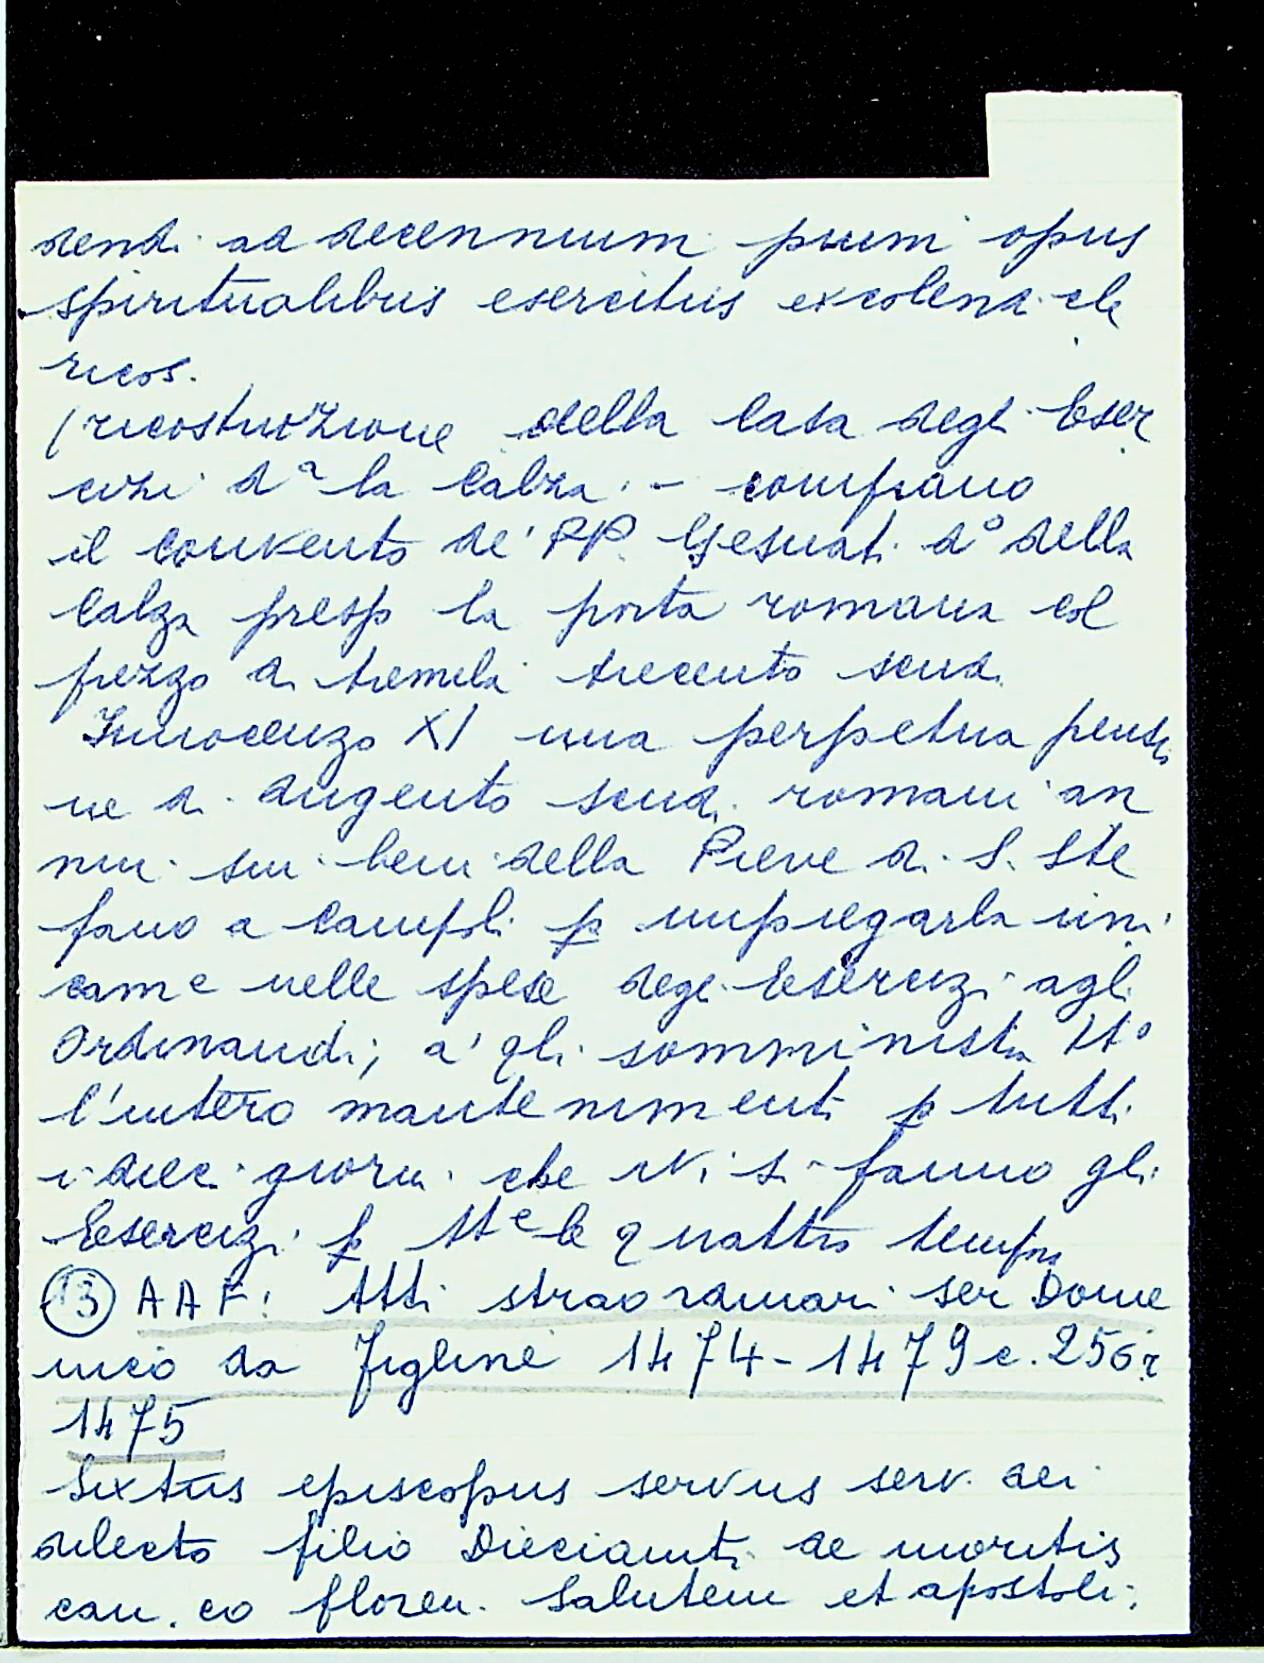 dendi ad decennium pium opus
spiritualibus esercitiis excolendi cle
ricos.
(ricostruzione della Casa degli Eser
cizi dª la Calza. - comprano
il convento de' PP. Gesuati dº della
Calza presso la porta romana col
prezzo di tremila trecento scudi.
Innocenzo XI una perpetua pensio
ne di dugento scudi romani an
nui sui beni della Pieve di S. Ste
fano a Campoli p impiegarla uni
came nelle spese degli Esercizi agli
Ordinandi; a' gli somministra ttº
l'intero mantenimenti p tutti
i dieci giorni che ivi si fanno gli
Esercizi p tte le quattro tempora
(13) AAF: Atti straordinari ser Dome
nico da Figline 1474-1479 c. 256r
1475
Sixtus episcopus servus serv. dei
dilecto filio Dieciaiuti de moritis
can. co floren. Salutem et apostoli: